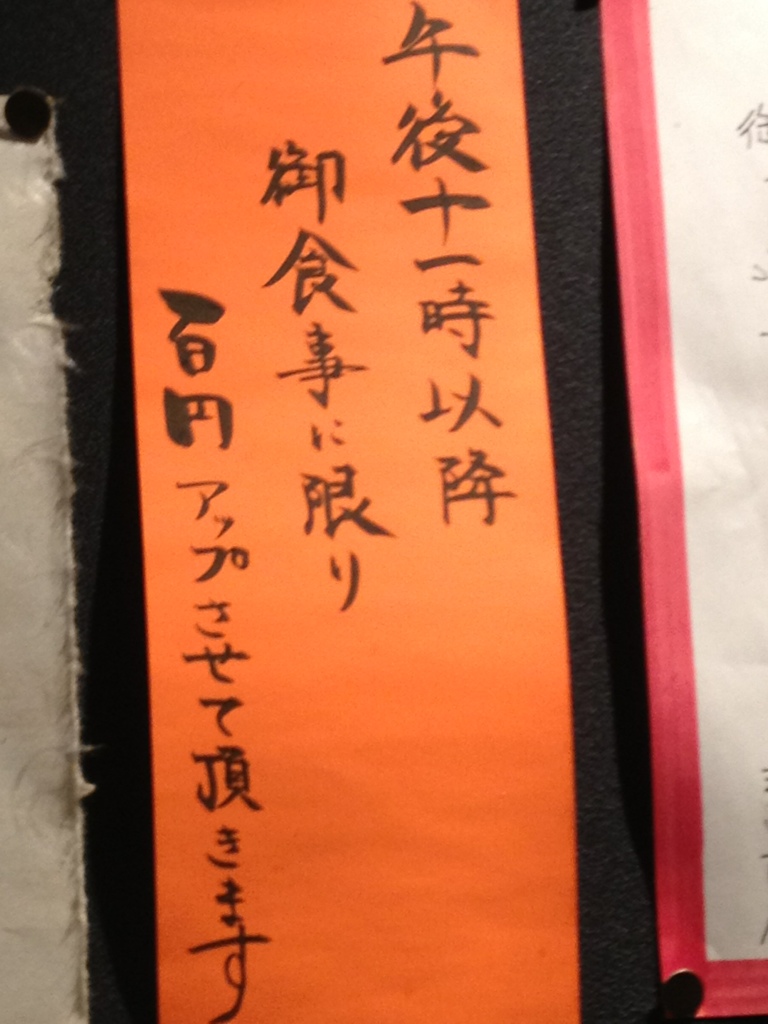 午後十一時以降
御食事に限り
百円アップさせて頂きます